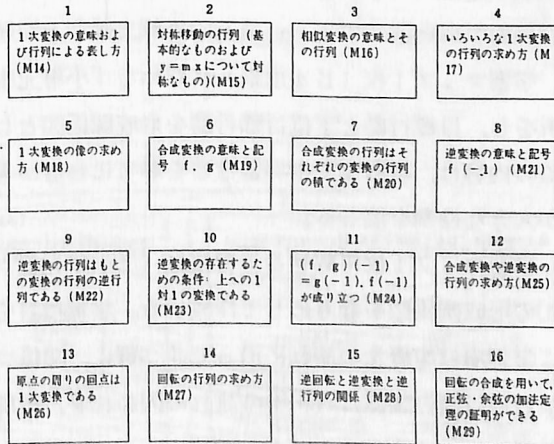 1
2
3
4
1次変換の意味およ
び行列による表し方
(M14)
対称移動の行列(基
本的なものおよび
y=mxについて対
称なもの)(M15)
相似変換の意味とそ
の行列(M16)
いろいろな1次変換
の行列の求め方(M
17)
5
6
7
8
1次変換の像の求め
方(M18)
合成変換の意味と記
号 f.g(M19)
合成変換の行列はそ
れぞれの変換の行列
の積である(M20)
逆変換の意味と記号
f(-1)(M21)
9
10
11
12
逆変換の行列はもと
の変換の行列の逆行
列である(M22)
逆変換の存在するた
めの条件:上への1
対1の変換である
(M23)
(f.g)(-1)
=g(-1).f(-1)
が成り立つ(M24)
合成変換や逆変換の
行列の求め方(M25)
13
14
15
16
原点の周りの回点は
1次変換である
(M26)
回転の行列の求め方
(M27)
逆回転と逆変換と逆
行列の関係(M28)
回転の合成を用いて、
正弦・余弦の加法定
理の証明ができる
(M29)